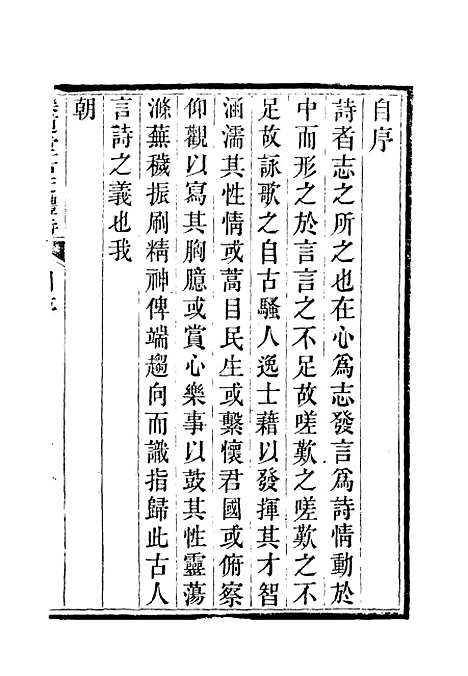 自序
詩者志之所之也在心爲志發言爲詩情動於
中而形之於言言之不足故嗟歎之嗟歎之不
足故詠歌之自古騷人逸士藉以發揮其才智
涵濡其性情或蒿目民生或繫懷君國或俯察
仰觀以寫其胸臆或賞心樂事以鼓其性靈蕩
滌蕪穢振刷精神俾端趨向而識指歸此古人
言詩之義也我
朝